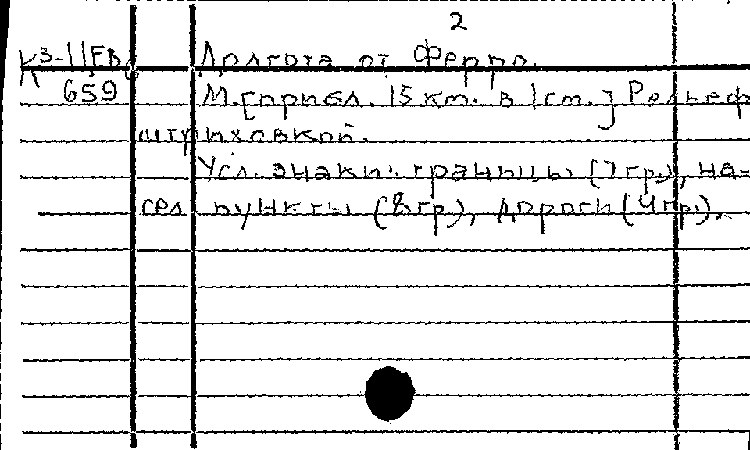 2
К3-11ЕВ Долгота от Ферро.
К 659 М. [прибл. 15 км. в 1 см.] Рельеф
штриховкой.
Усл. знаки: границы (7 гр.), на-
сел. пункты (8 гр.), дороги (4 гр.).